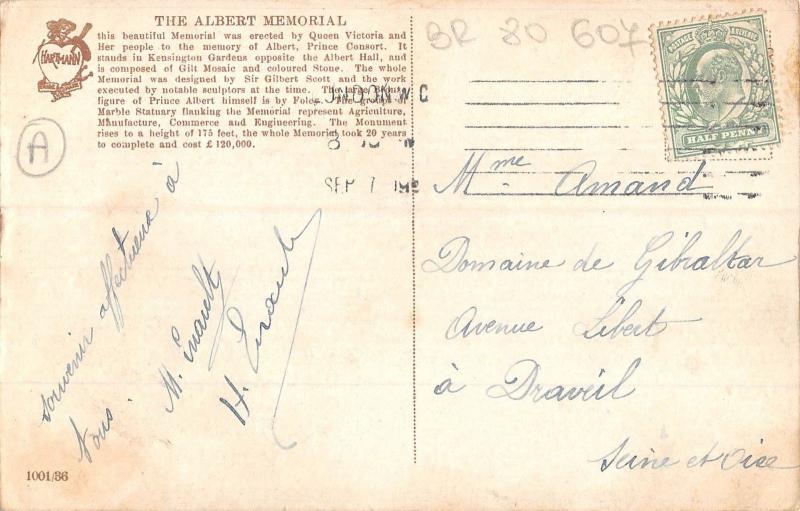 THE ALBERT MEMORIAL
this beautiful Memorial was erected by Queen Victoria and
Her people to the memory of Albert, Prince Consort. It
stands in Kensington Gardens opposite the Albert Hall, and
is composed of Gilt Mosaic and coloured Stone. The whole
Memorial was designed by Sir Gilbert Scott and the work
executed by notable sculptors at the time. The large
figure of Prince Albert himself is by Foley. The groups of
Marble Statuary flanking the Memorial represent Agriculture,
Manufacture, Commerce and Engineering. The Monument
rises to a height of 175 feet, the whole Memorial took 20 years
to complete and cost £ 120,000.
HARTMANN
A
souvenir affectueux à
tous.
M.
H.
1001/36
BR 80 607
LONDON W C
SEP 7
POSTAGE
HALF PENNY
Mme Amand
Domaine de Gibraltar
Avenue Libert
à Draveil
Seine et Oise